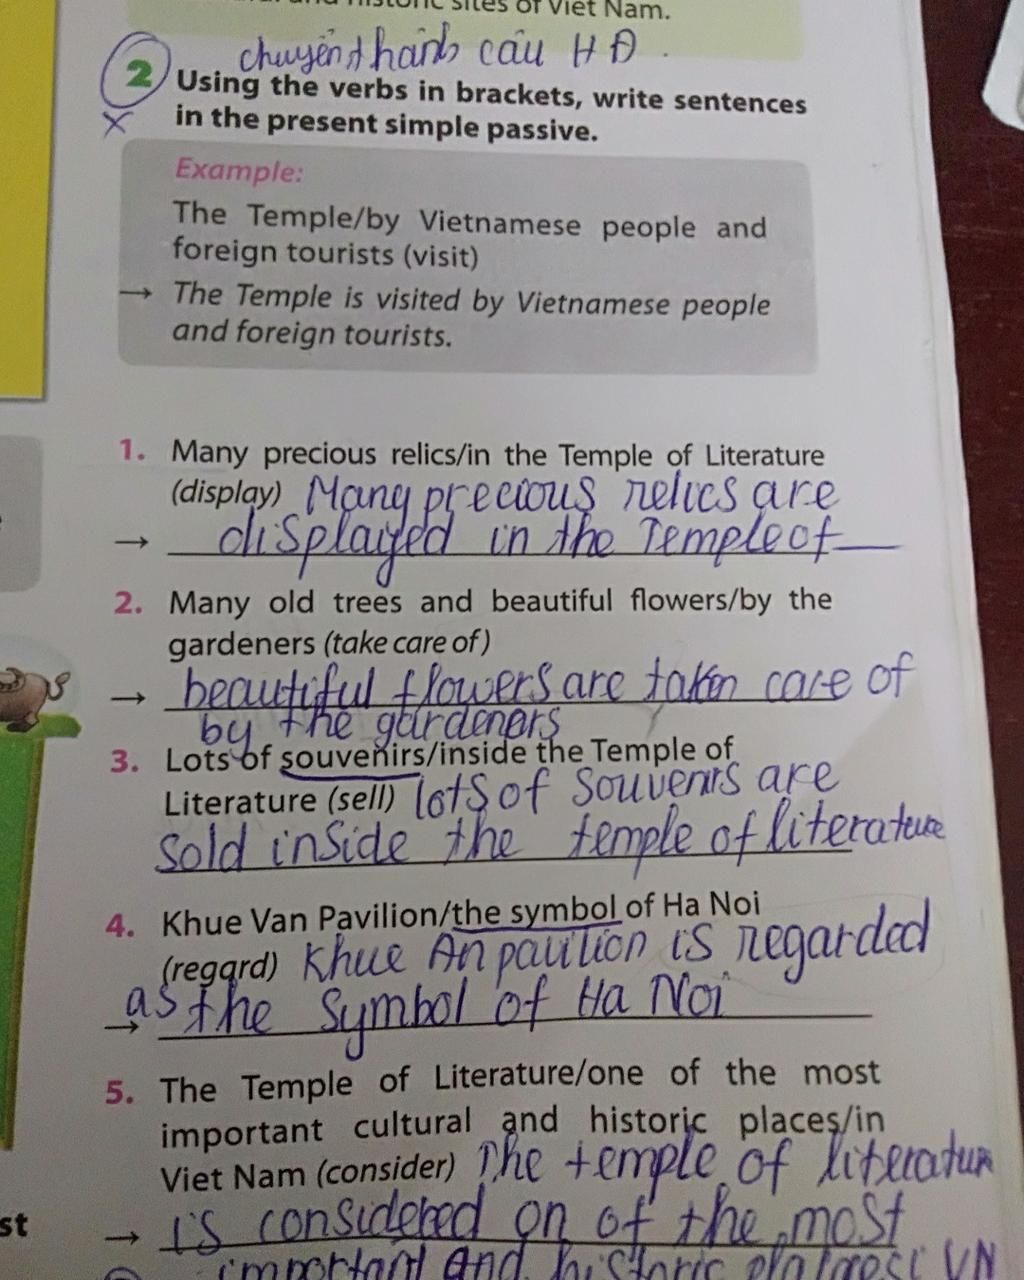 and historic sites of Viet Nam.
chuyển thành câu HĐ.
2 Using the verbs in brackets, write sentences
in the present simple passive.
Example:
The Temple/by Vietnamese people and
foreign tourists (visit)
→ The Temple is visited by Vietnamese people
and foreign tourists.
1. Many precious relics/in the Temple of Literature
(display) Many precious relics are
→ displayed in the Temple of
2. Many old trees and beautiful flowers/by the
gardeners (take care of)
→ beautiful flowers are taken care of
by the gardeners
3. Lots of souvenirs/inside the Temple of
Literature (sell) lots of souvenirs are
sold inside the temple of literature
4. Khue Van Pavilion/the symbol of Ha Noi
(regard) Khue An pavilion is regarded
as the symbol of Ha Noi
→
5. The Temple of Literature/one of the most
important cultural and historic places/in
Viet Nam (consider) The temple of literatur
st
→ is considered on of the most
important and historic VN